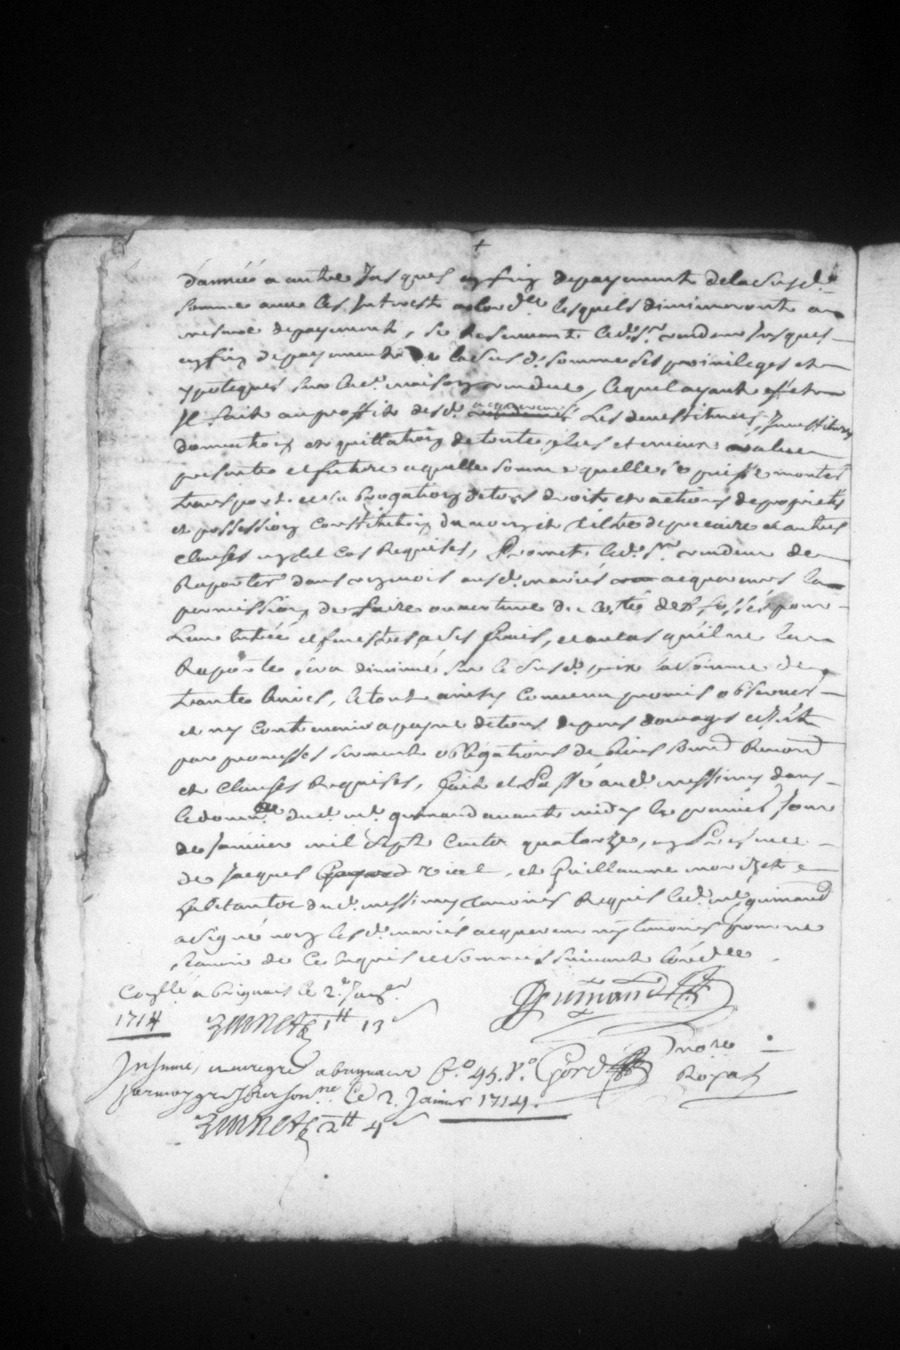 d'année a autre Jusques enfin de payement de la susd.e
somme avec les Interest a lord.re lesquels diminueront a
mesure de payement, se Reservant led. s.r vendeur Jusques
enfin de payement de la susd. somme ses privileges et
ypoteques sur lad. maison vendue, lequel ayant
Il fait au proffit desd. acquereurs Les devestitures, Investitures
demission et quittation de toute plus et mieux value
presente et future a quelle somme quelle se puisse monter
transport et subrogation de tous droits et actions de proprieté
et possession constitution du nom et tiltre de precaire et autres
clauses en tel cas Requises, Promet led. s.r vendeur de
Raporter dans un mois ausd. mariés acquereurs la
permission de faire ouverture du costé des fossés pour
Lentrée et fenestres a ses frais, et au cas quil ne la
Raporte sera diminué sur le susd. prix la somme de
trante livres, le tout ainsy convenu promis observer
et ny contrevenir a payne de tous depens domages et Int.
par promesses serment obligations de biens soum. Renon.
et clauses Requises, fait et Passé aud. messimy dans
le domi.le dud. m.e guinand avant midy le premier Jour
de Janvier mil sept cents quatorze, en Presence
de Jacques vial, et Guillaume
habitants dud. messimy temoins Requis led. m.e guinand
a signé non lesd. mariés acquereurs ny temoins pour ne
scavoir de ce enquis et sommés suivant lord.ce
Conllé a brignais le 2.e Jan.er
1714 1 tt 13 s
Guinand
Insinué, enregré a brignais f.o 45. v.o Gord
Notre
Royal
2. Janvier 1714.
2 tt 4 s